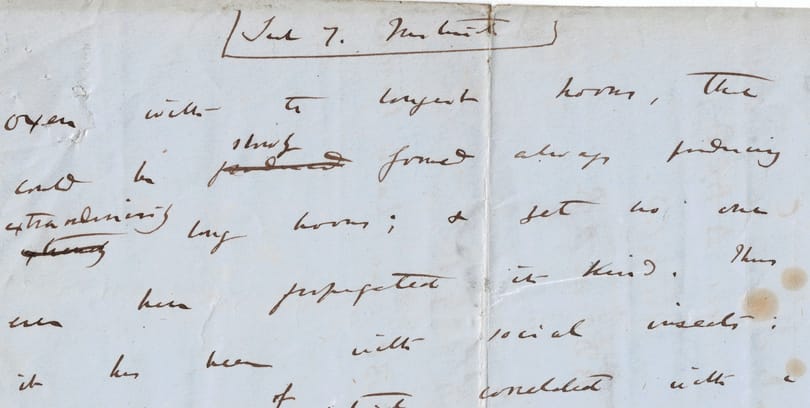 [Sect 7. Instinct]
oxen with the longest horns,
slowly
could be produced formed always producing
extraordinarily
long horns; & yet no one
ever have propagated its kind. Thus
it has been with social insects:
of correlated with a